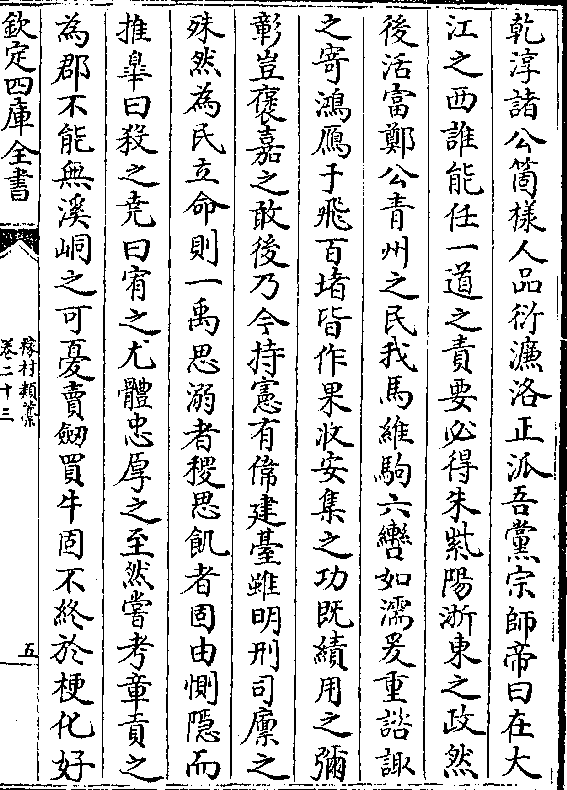 乾淳諸公箇様人品衍濂洛正派吾黨宗師帝曰在大
江之西誰能任一道之責要必得朱紫陽浙東之政然
後活富鄭公青州之民我馬維駒六轡如濡爰重諮諏
之寄鴻鴈于飛百堵皆作果收安集之功既績用之彌
彰豈褒嘉之敢後乃今持憲有俻建臺雖明刑司廩之
殊然為民立命則一禹思溺者稷思飢者固由惻隱而
推臯曰殺之堯曰宥之尤體忠厚之至然嘗考章貢之
為郡不能無溪峒之可憂賣劒買牛固不終於梗化好
欽定四庫全書
稼村類藁
卷二十三
五